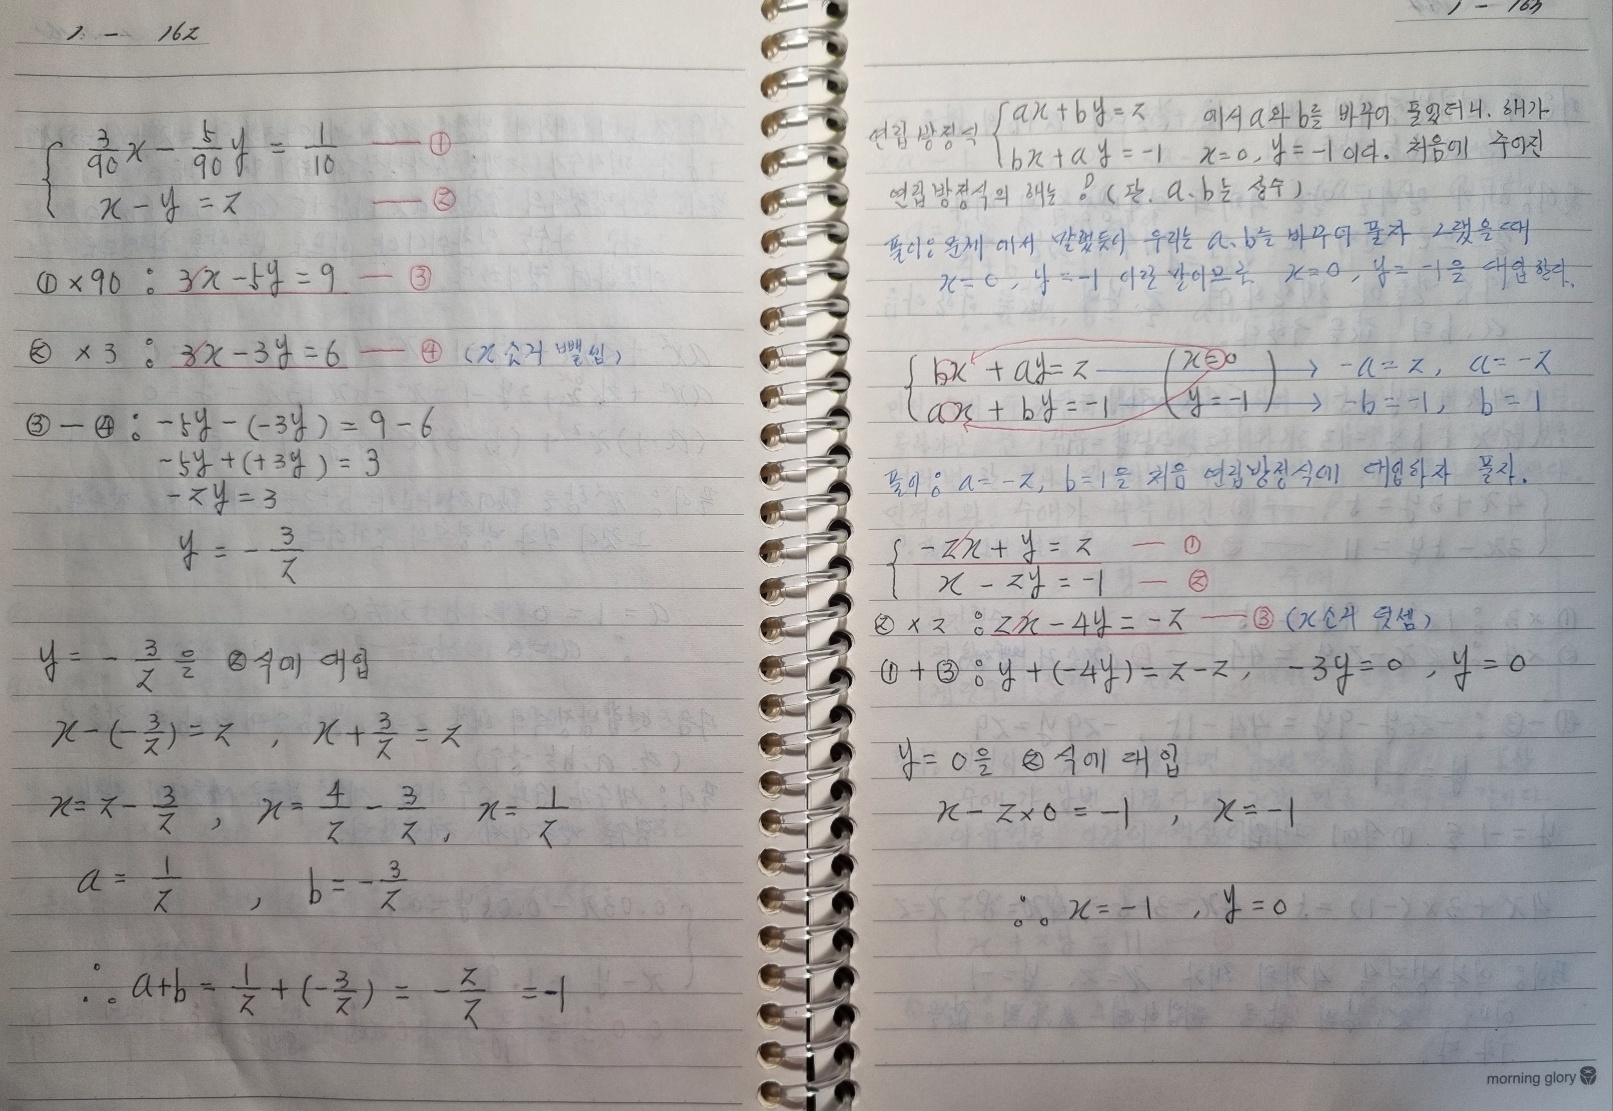 1 - 162
3/90 x - 5/90 y = 1/10 — ①
x - y = 2 — ②
① × 90 : 3x - 5y = 9 — ③
② × 3 : 3x - 3y = 6 — ④ (x 소거 뺄셈)
③ - ④ : -5y - (-3y) = 9 - 6
-5y + (+3y) = 3
-2y = 3
y = - 3/2
y = - 3/2 을 ②식에 대입
x - (- 3/2) = 2 , x + 3/2 = 2
x = 2 - 3/2 , x = 4/2 - 3/2 , x = 1/2
a = 1/2 , b = - 3/2
∴ a+b = 1/2 + (- 3/2) = - 2/2 = -1
1 - 163
연립방정식 { ax + by = 2 에서 a와 b를 바꾸어 풀었더니. 해가
bx + ay = -1 x=0, y=-1 이다. 처음에 주어진
연립방정식의 해는? (단. a.b는 상수)
풀이: 문제에서 말했듯이 우리는 a.b를 바꾸어 풀자 그랬을때
x=0, y=-1 이란 말이므로 x=0, y=-1을 대입한다.
bx + ay = 2 (x=0 → -a = 2, a = -2
ax + by = -1 y=-1) → -b = -1, b = 1
풀이: a=-2, b=1을 처음 연립방정식에 대입하자 풀자.
-2x + y = 2 — ①
x - 2y = -1 — ②
② × 2 : 2x - 4y = -2 — ③ (x 소거 덧셈)
① + ③ : y + (-4y) = 2 - 2, -3y = 0 , y = 0
y = 0 을 ② 식에 대입
x - 2×0 = -1 , x = -1
∴ x = -1 , y = 0
morning glory